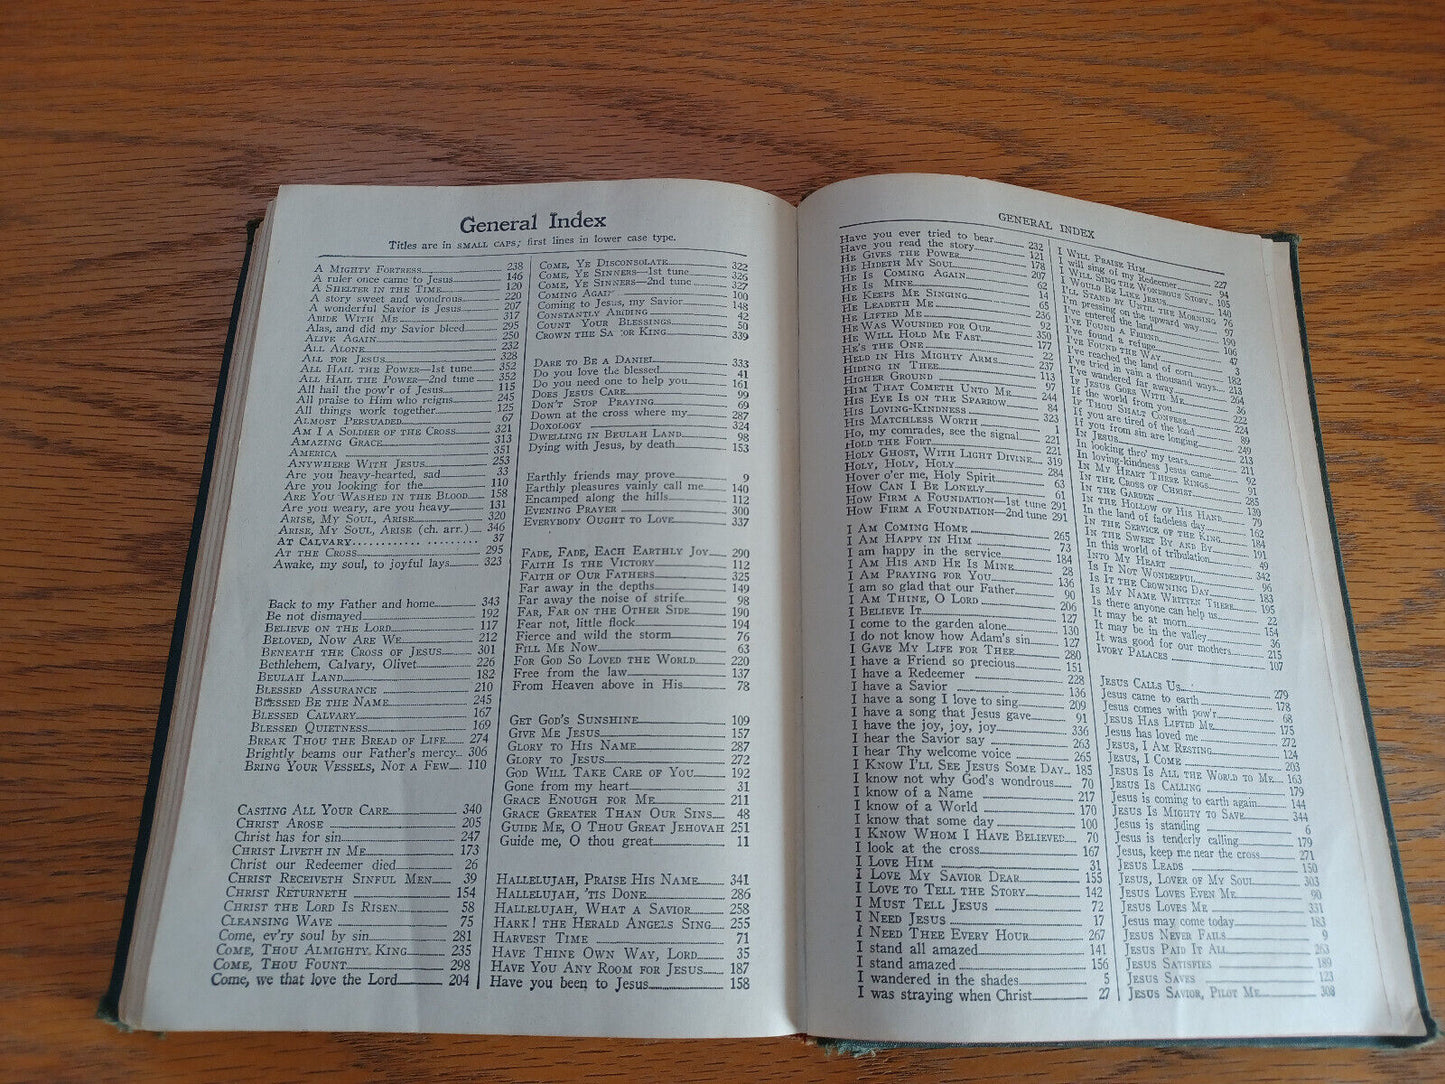 General Index
Titles are in SMALL CAPS; first lines in lower case type.
A MIGHTY FORTRESS 238
A ruler once came to Jesus 146
A SHELTER IN THE TIME 120
A story sweet and wondrous 220
A wonderful Savior is Jesus 207
ABIDE WITH ME 317
Alas, and did my Savior bleed 295
ALIVE AGAIN 250
ALL ALONE 232
ALL FOR JESUS 328
ALL HAIL THE POWER—1st tune 352
ALL HAIL THE POWER—2nd tune 352
All hail the pow'r of Jesus 115
All praise to Him who reigns 245
All things work together 125
ALMOST PERSUADED 67
AM I A SOLDIER OF THE CROSS 321
AMAZING GRACE 313
AMERICA 351
ANYWHERE WITH JESUS 253
Are you heavy-hearted, sad 33
Are you looking for the 110
ARE YOU WASHED IN THE BLOOD 158
Are you weary, are you heavy 131
ARISE, MY SOUL, ARISE 320
ARISE, MY SOUL, ARISE (ch. arr.) 346
AT CALVARY 37
AT THE CROSS 295
Awake, my soul, to joyful lays 323
Back to my Father and home 343
Be not dismayed 192
BELIEVE ON THE LORD 117
BELOVED, NOW ARE WE 212
BENEATH THE CROSS OF JESUS 301
Bethlehem, Calvary, Olivet 226
BEULAH LAND 182
BLESSED ASSURANCE 210
BLESSED BE THE NAME 245
BLESSED CALVARY 167
BLESSED QUIETNESS 169
BREAK THOU THE BREAD OF LIFE 274
Brightly beams our Father's mercy 306
BRING YOUR VESSELS, NOT A FEW 110
CASTING ALL YOUR CARE 340
CHRIST AROSE 205
Christ has for sin 247
CHRIST LIVETH IN ME 173
Christ our Redeemer died 26
CHRIST RECEIVETH SINFUL MEN 39
CHRIST RETURNETH 154
CHRIST THE LORD IS RISEN 58
CLEANSING WAVE 75
Come, ev'ry soul by sin 281
COME, THOU ALMIGHTY KING 235
COME, THOU FOUNT 298
Come, we that love the Lord 204
COME, YE DISCONSOLATE 322
COME, YE SINNERS—1st tune 326
COME, YE SINNERS—2nd tune 327
COMING AGAIN 100
Coming to Jesus, my Savior 148
CONSTANTLY ABIDING 42
COUNT YOUR BLESSINGS 50
CROWN THE SA 'OR KING 339
DARE TO BE A DANIEL 333
Do you love the blessed 41
Do you need one to help you 161
DOES JESUS CARE 99
DON'T STOP PRAYING 69
Down at the cross where my 287
DOXOLOGY 324
DWELLING IN BEULAH LAND 98
Dying with Jesus, by death 153
Earthly friends may prove 9
Earthly pleasures vainly call me 140
Encamped along the hills 112
EVENING PRAYER 300
EVERYBODY OUGHT TO LOVE 337
FADE, FADE, EACH EARTHLY JOY 290
FAITH IS THE VICTORY 112
FAITH OF OUR FATHERS 325
Far away in the depths 149
Far away the noise of strife 98
FAR, FAR ON THE OTHER SIDE 190
Fear not, little flock 194
Fierce and wild the storm 76
FILL ME NOW 63
FOR GOD SO LOVED THE WORLD 220
Free from the law 137
From Heaven above in His 78
GET GOD'S SUNSHINE 109
GIVE ME JESUS 157
GLORY TO HIS NAME 287
GLORY TO JESUS 272
GOD WILL TAKE CARE OF YOU 192
Gone from my heart 31
GRACE ENOUGH FOR ME 211
GRACE GREATER THAN OUR SINS 48
GUIDE ME, O THOU GREAT JEHOVAH 251
Guide me, O thou great 11
HALLELUJAH, PRAISE HIS NAME 341
HALLELUJAH, 'TIS DONE 286
HALLELUJAH, WHAT A SAVIOR 258
HARK! THE HERALD ANGELS SING 255
HARVEST TIME 71
HAVE THINE OWN WAY, LORD 35
HAVE YOU ANY ROOM FOR JESUS 187
Have you been to Jesus 158
GENERAL INDEX
Have you ever tried to bear 232
Have you read the story 121
HE GIVES THE POWER 178
HE HIDETH MY SOUL 207
HE IS COMING AGAIN 62
HE IS MINE 14
HE KEEPS ME SINGING 65
HE LEADETH ME 236
HE LIFTED ME 92
HE WAS WOUNDED FOR OUR 350
HE WILL HOLD ME FAST 177
HE'S THE ONE 22
HELD IN HIS MIGHTY ARMS 237
HIDING IN THEE 113
HIGHER GROUND 97
HIM THAT COMETH UNTO ME 244
HIS EYE IS ON THE SPARROW 84
HIS LOVING-KINDNESS 323
HIS MATCHLESS WORTH 1
Ho, my comrades, see the signal 221
HOLD THE FORT 221
HOLY GHOST, WITH LIGHT DIVINE 319
HOLY, HOLY, HOLY 284
Hover o'er me, Holy Spirit 63
HOW CAN I BE LONELY 61
HOW FIRM A FOUNDATION—1st tune 291
HOW FIRM A FOUNDATION—2nd tune 291
I AM COMING HOME 265
I AM HAPPY IN HIM 73
I am happy in the service 184
I AM HIS AND HE IS MINE 28
I AM PRAYING FOR YOU 136
I am so glad that our Father 90
I AM THINE, O LORD 206
I BELIEVE IT 127
I come to the garden alone 130
I do not know how Adam's sin 127
I GAVE MY LIFE FOR THEE 280
I have a Friend so precious 151
I have a Redeemer 228
I have a Savior 136
I have a song I love to sing 209
I have a song that Jesus gave 91
I have the joy, joy, joy 336
I hear the Savior say 263
I hear Thy welcome voice 265
I KNOW I'LL SEE JESUS SOME DAY 185
I know not why God's wondrous 70
I know of a Name 217
I know of a World 170
I know that some day 100
I KNOW WHOM I HAVE BELIEVED 70
I look at the cross 167
I LOVE HIM 31
I LOVE MY SAVIOR DEAR 155
I LOVE TO TELL THE STORY 142
I MUST TELL JESUS 72
I NEED JESUS 17
I NEED THEE EVERY HOUR 267
I stand all amazed 141
I stand amazed 156
I wandered in the shades 5
I was straying when Christ 27
I WILL PRAISE HIM 227
I will sing of my Redeemer 94
I WILL SING THE WONDROUS STORY 105
I WOULD BE LIKE JESUS 140
I'LL STAND BY UNTIL THE MORNING 76
I'm pressing on the upward way 97
I've entered the land 190
I'VE FOUND A FRIEND 106
I've found a refuge 47
I'VE FOUND THE WAY 3
I've reached the land of corn 182
I've tried in vain a thousand ways 213
I've wandered far away 264
IF JESUS GOES WITH ME 36
If the world from you 222
IF THOU SHALT CONFESS 224
If you are tired of the load 89
If you from sin are longing 249
IN JESUS 213
In looking thro' my tears 211
In loving-kindness Jesus came 92
IN MY HEART THERE RINGS 91
IN THE CROSS OF CHRIST 285
IN THE GARDEN 130
IN THE HOLLOW OF HIS HAND 79
In the land of fadeless day 162
IN THE SERVICE OF THE KING 184
IN THE SWEET BY AND BY 191
In this world of tribulation 49
INTO MY HEART 342
IS IT NOT WONDERFUL 96
IS IT THE CROWNING DAY 183
IS MY NAME WRITTEN THERE 195
Is there anyone can help us 22
It may be at morn 154
It may be in the valley 36
It was good for our mothers 215
IVORY PALACES 107
JESUS CALLS US 279
Jesus came to earth 178
Jesus comes with pow'r 68
JESUS HAS LIFTED ME 175
Jesus has loved me 272
JESUS, I AM RESTING 124
JESUS, I COME 203
JESUS IS ALL THE WORLD TO ME 163
JESUS IS CALLING 179
Jesus is coming to earth again 144
JESUS IS MIGHTY TO SAVE 344
Jesus is standing 6
Jesus is tenderly calling 179
Jesus, keep me near the cross 271
JESUS LEADS 150
JESUS, LOVER OF MY SOUL 303
JESUS LOVES EVEN ME 90
JESUS LOVES ME 331
Jesus may come today 183
JESUS NEVER FAILS 9
JESUS PAID IT ALL 263
JESUS SATISFIES 189
JESUS SAVES 123
JESUS SAVIOR, PILOT ME 308